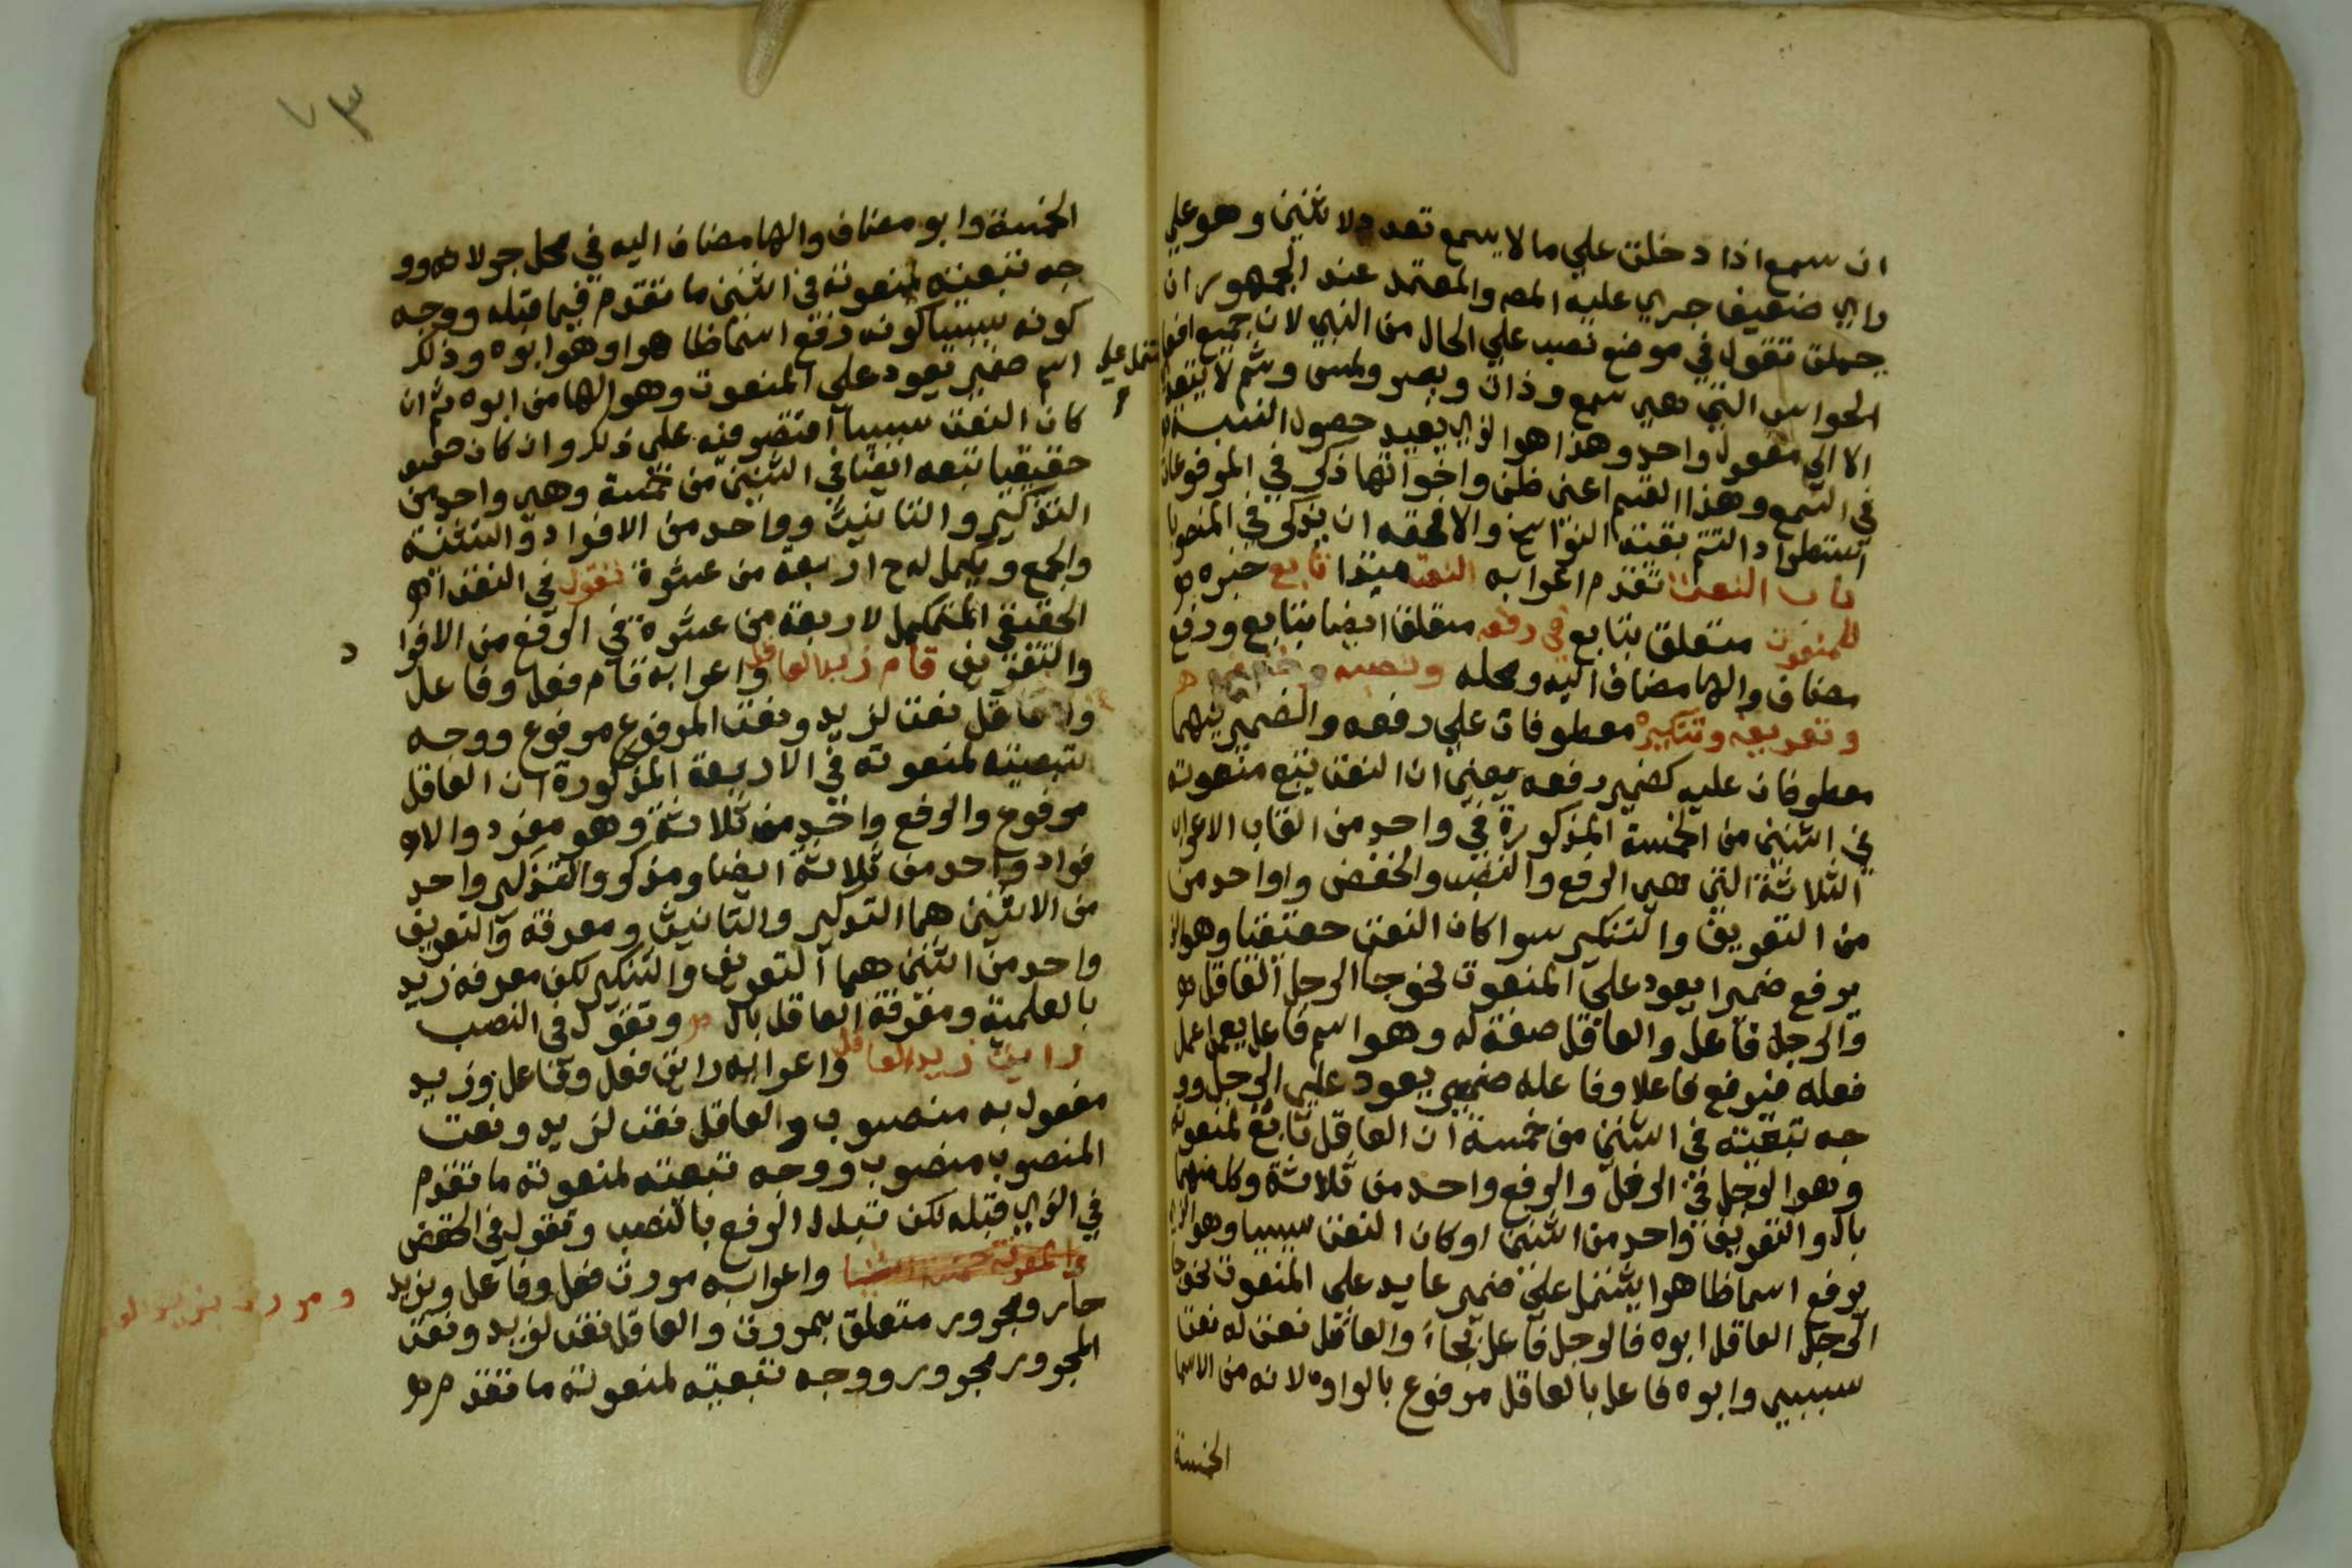 ان سمع اذا دخلت علي ما لا يسمع تعدد ولا ثنين وهو علي
راي ضعيف جري عليه المص والمعتمد عند الجمهور ان
جملة تقول في موضع نصب علي الحال من النبي لان جميع افعا
الحواس التي هي سمع وذاق وبصر ولمس وشم لا يتعد
الا الي مفعول واحد وهذا هو الذي يفيد حصول النسبة
في السمع وهذا القسم اعني ظن واخواتها ذكر في المرفوعات
استطرادا لتتم بقية النواسخ والا فحقه ان يذكر في المنصوبا
باب النعت تقدم اعرابه النعت مبتدا تابع خبره
للمنعوت متعلق بتابع في رفعه متعلق ايضا بتابع ورفع
مضاف والها مضاف اليه ومحله ونصبه وخفضه
وتعريفه وتنكيره معطوفات علي رفعه والضمير منهما
معطوفان عليه كضمير رفعه يعني ان النعت يتبع منعوته
في اثنين من الخمسة المذكورة في واحد من القاب الاعراب
الثلاثة التي هي الرفع والنصب والخفض واواحد من
من التعريف والتنكير سوا كان النعت حقيقيا وهو الذ
يرفع ضميرا يعود علي المنعوت نحو جا الرجل العاقل
والرجل فاعل والعاقل صفة له وهو اسم فاعل يعمل عمل
فعله فيرفع فاعلا وفاعله ضمير يعود علي الرجل وو
جه تبعيته في اثنين من خمسة ان العاقل تابع لمنعوته
وهو الرجل في الرفع والرفع واحد من ثلاثة وكل منهما
بال والتعريف واحد من اثنين او كان النعت سببيا وهو الذي
يرفع اسما ظاهرا يشتمل علي ضمير عايد علي المنعوت نحو جا
الرجل العاقل ابوه فالرجل فاعل بجاء والعاقل نعت له نعت
سببي وابوه فاعل بالعاقل مرفوع بالواو لانه من الاسما
الخمسة
٧٣
الخمسة وابو مضاف والها مضاف اليه في محل جر لا وو
جه تبعيته لمنعوته في اثنين ما تقدم فيما قبله ووجه
كونه سببيا كونه رفع اسما ظاهرا وهو ابوه وذلك
تمل علي
اسم ضمير يعود علي المنعوت وهو الها من ابوه ثم ان
كان النعت سببيا اقتصر فيه علي ذلك وان كان
حقيقيا تبعه ايضا في اثنين من خمسة وهي واحد من
التذكير والتانيث وواحد من الافراد والتثنية
والجمع ويكمل له ح اربعة من عشرة فتقول في النعت
الحقيقي المتكمل لاربعة من عشرة في الرفع من الافرا
د
والتعريف قام زيد العاقل واعرابه قام فعل وفاعل
والعاقل نعت لزيد ونعت المرفوع مرفوع ووجه
تبعيته لمنعوته في الاربعة المذكورة ان العاقل
مرفوع والرفع واحد من ثلاثة وهو مفرد والا
فراد واحد من ثلاثة ايضا ومذكر والتذكير واحد
من الاثنين هما التذكير والتانيث ومعرفة والتعريف
واحد من اثنين هما التعريف والتنكير لكن معرفة زيد
بالعلمية ومعرفة العاقل بال وتقول في النصب
رايت زيد العاقل واعرابه رايت فعل وفاعل وزيد
مفعول به منصوب والعاقل نعت لزيد ونعت
المنصوب منصوب ووجه تبعيته لمنعوته ما تقدم
في الذي قبله لكن تبدل الرفع بالنصب وتقول في الخفض
والمعرفة خمسة اشيا واعرابه مررت فعل وفاعل وبزيد
ومررت بزيد
جار ومجرور متعلق بمررت والعاقل نعت لزيد ونعت
المجرور مجرور ووجه تبعيته لمنعوته ما تقدم